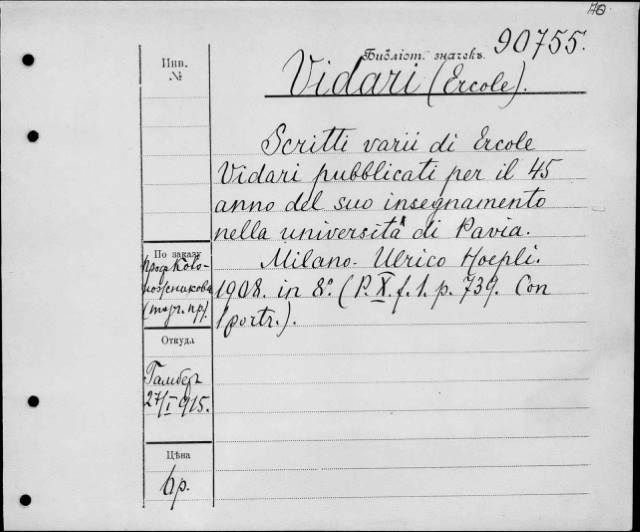 Библіот. значекъ 90755.
Инв.
№
Vidari (Ercole).
Scritti varii di Ercole
Vidari pubblicati per il 45
anno del suo insegnamento
nella università di Pavia.
Milano. Ulrico Hoepli.
1908. in 8º. (P. X. f. 1. p. 739. Con
1 portr.).
По заказу
(торг. пр).
Откуда
27/I 915.
Цѣна
6р.